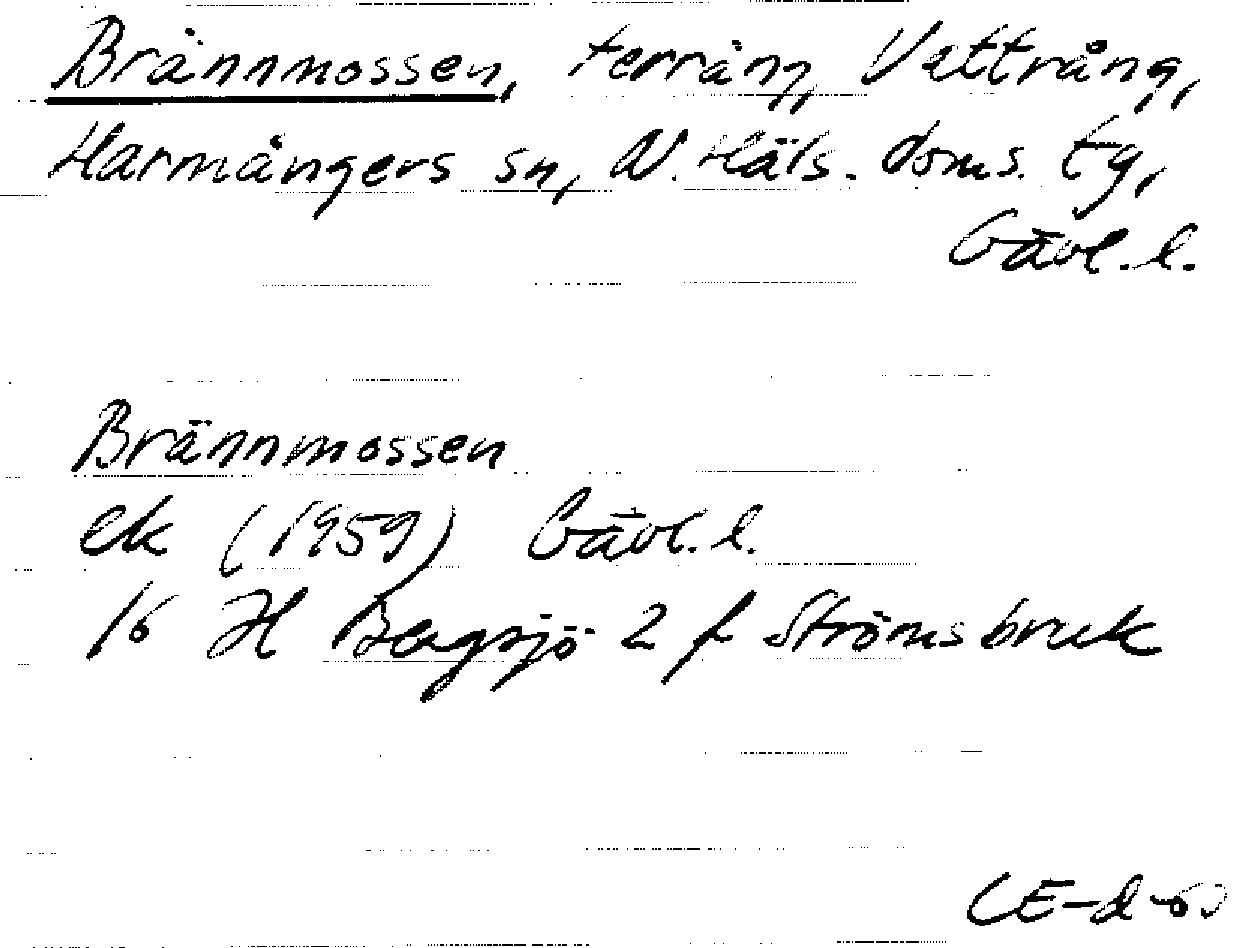 Brännmossen, terräng, Vattrång,
Harmångers sn, N. Häls. doms. tg,
Gävl. l.
Brännmossen
ek (1959) Gävl. l.
16 H Bergsjö 2 f Strömsbruk